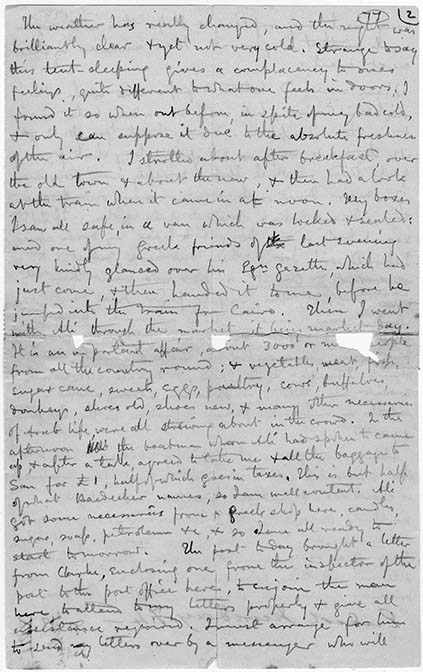 77 2
The weather has really changed, and the night was
brilliantly clear & yet not very cold. Strange to say
this tent-sleeping gives a complacency to ones
feelings, quite different to what one feels in doors; I
found it so when out before, in spite of my bad cold,
& only can suppose it due to the absolute freshness
of the air. I strolled about after breakfast, over
the old town & about the new, & then had a look
at the train when it came in at noon. My boxes
I saw all safe, in a van which was locked & sealed:
and one of my Greek friends of last evening
very kindly glanced over his Egn. gazette, which had
just come, & then handed it to me, before he
jumped into the train for Cairo. Then I went
with Ali through the market, it being market day.
It is an important affair, about 3000 or more people
from all the country round; & vegetables, meat, fish,
sugar cane, sweets, eggs, poultry, cows, buffalos,
donkeys, shoes old, shoes new, & many other necessaries
of Arab life, were all strewn about in the crowd. In the
afternoon the boatman whom Ali had spoken to came
up & after a talk, agreed to take me & all the baggage to
San for £1, half of which goes in taxes. This is but half
of what Baedecker names, so I am well content. Ali
got some necessaries from a Greek shop here, candles,
sugar, soap, petroleum &c, & so I am all ready to
start tomorrow. The post to day brought a letter
from Clarke, enclosing one from the inspector of the
post to the post office here, to enjoin the man
here to attend to my letters properly & give all
assistance required. I must arrange for him
to send my letters over by a messenger who will